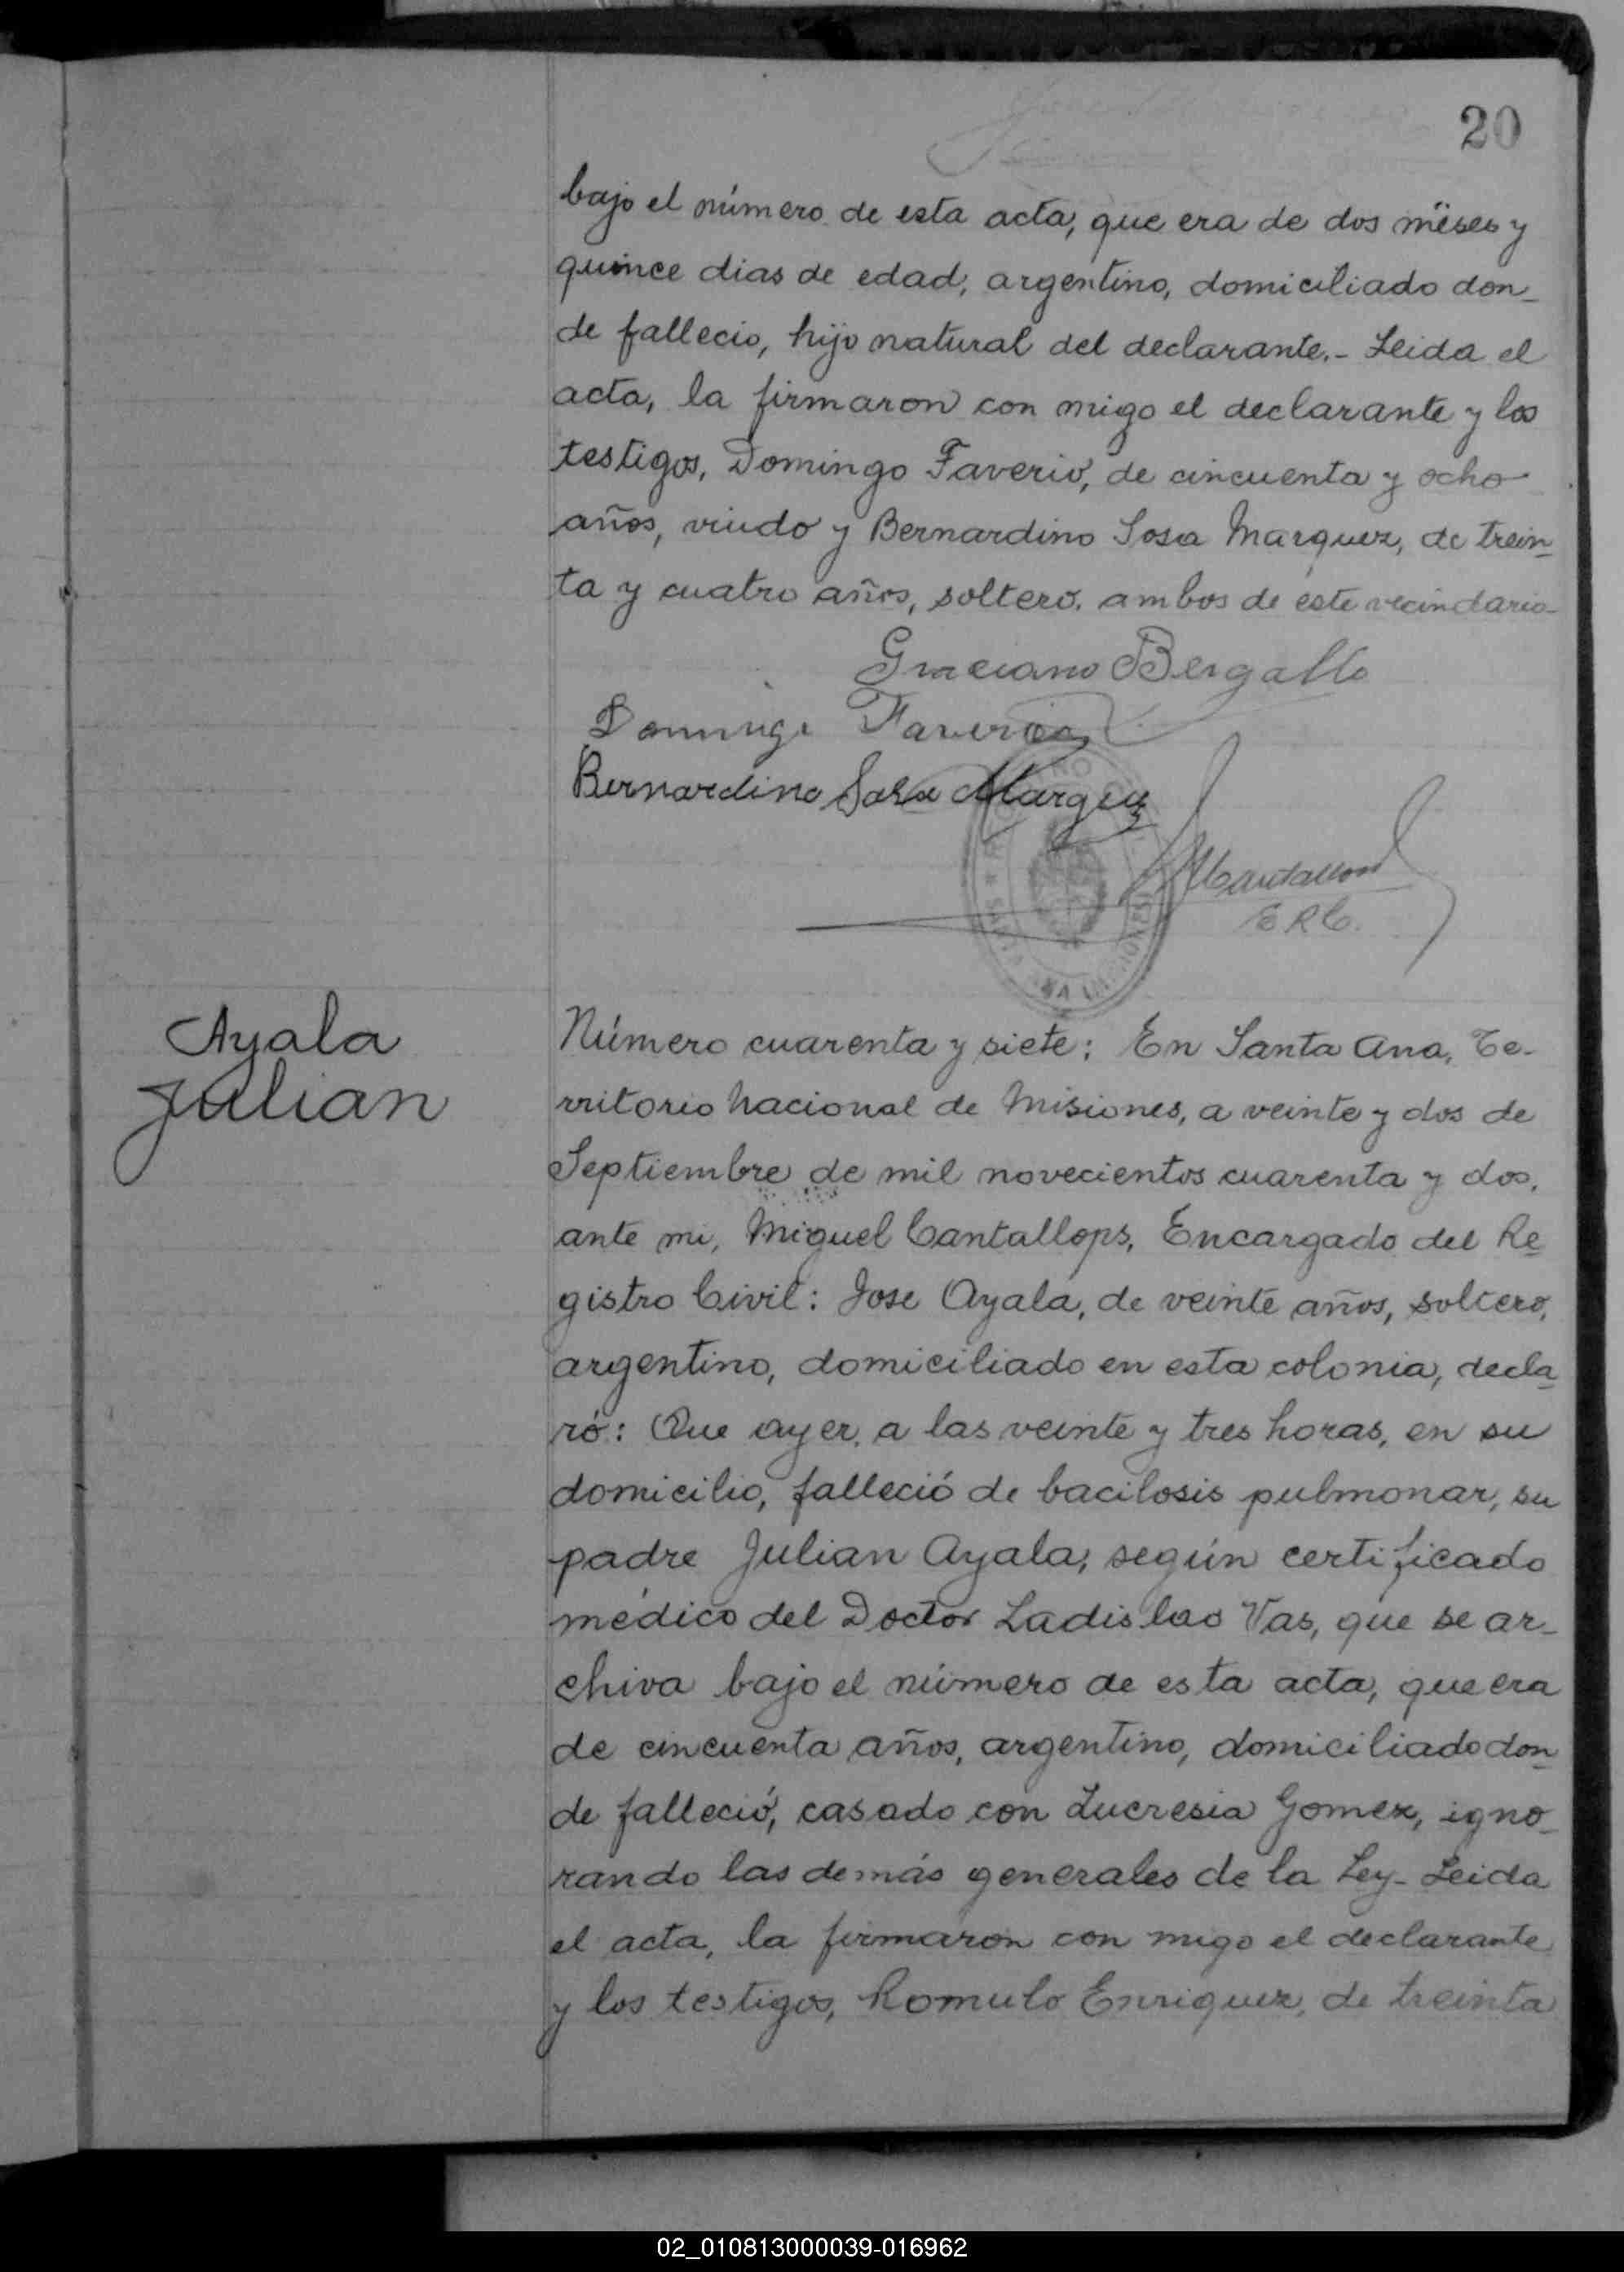 20
bajo el número de esta acta, que era de dos meses y
quince dias de edad, argentino, domiciliado don_
de fallecio, hijo natural del declarante.- Leida el
acta, la firmaron con migo el declarante y los
testigos, Domingo Faverio, de cincuenta y ocho
años, viudo y Bernardino Sosa Marquez, de trein_
ta y cuatro años, soltero, ambos de éste vecindario_
Graciano Bergallo
Domingo Faverio
Bernardino Sosa Marquez
E R C.
Ayala
Julian
Número cuarenta y siete: En Santa Ana, Te-
rritorio Nacional de Misiones, a veinte y dos de
Septiembre de mil novecientos cuarenta y dos,
ante mi, Miguel Cantallops, Encargado del Re_
gistro Civil: Jose Ayala, de veinte años, soltero,
argentino, domiciliado en esta colonia, decla_
ró: Que ayer, a las veinte y tres horas, en su
domicilio, falleció de bacilosis pulmonar, su
padre Julian Ayala, según certificado
médico del Doctor Ladislao Vas, que se ar_
chiva bajo el número de esta acta, que era
de cincuenta años, argentino, domiciliado don_
de falleció, casado con Lucresia Gomez, igno_
rando las demás generales de la Ley- Leida
el acta, la firmaron con migo el declarante
y los testigos, Romulo Enriquez, de treinta
02_010813000039-016962